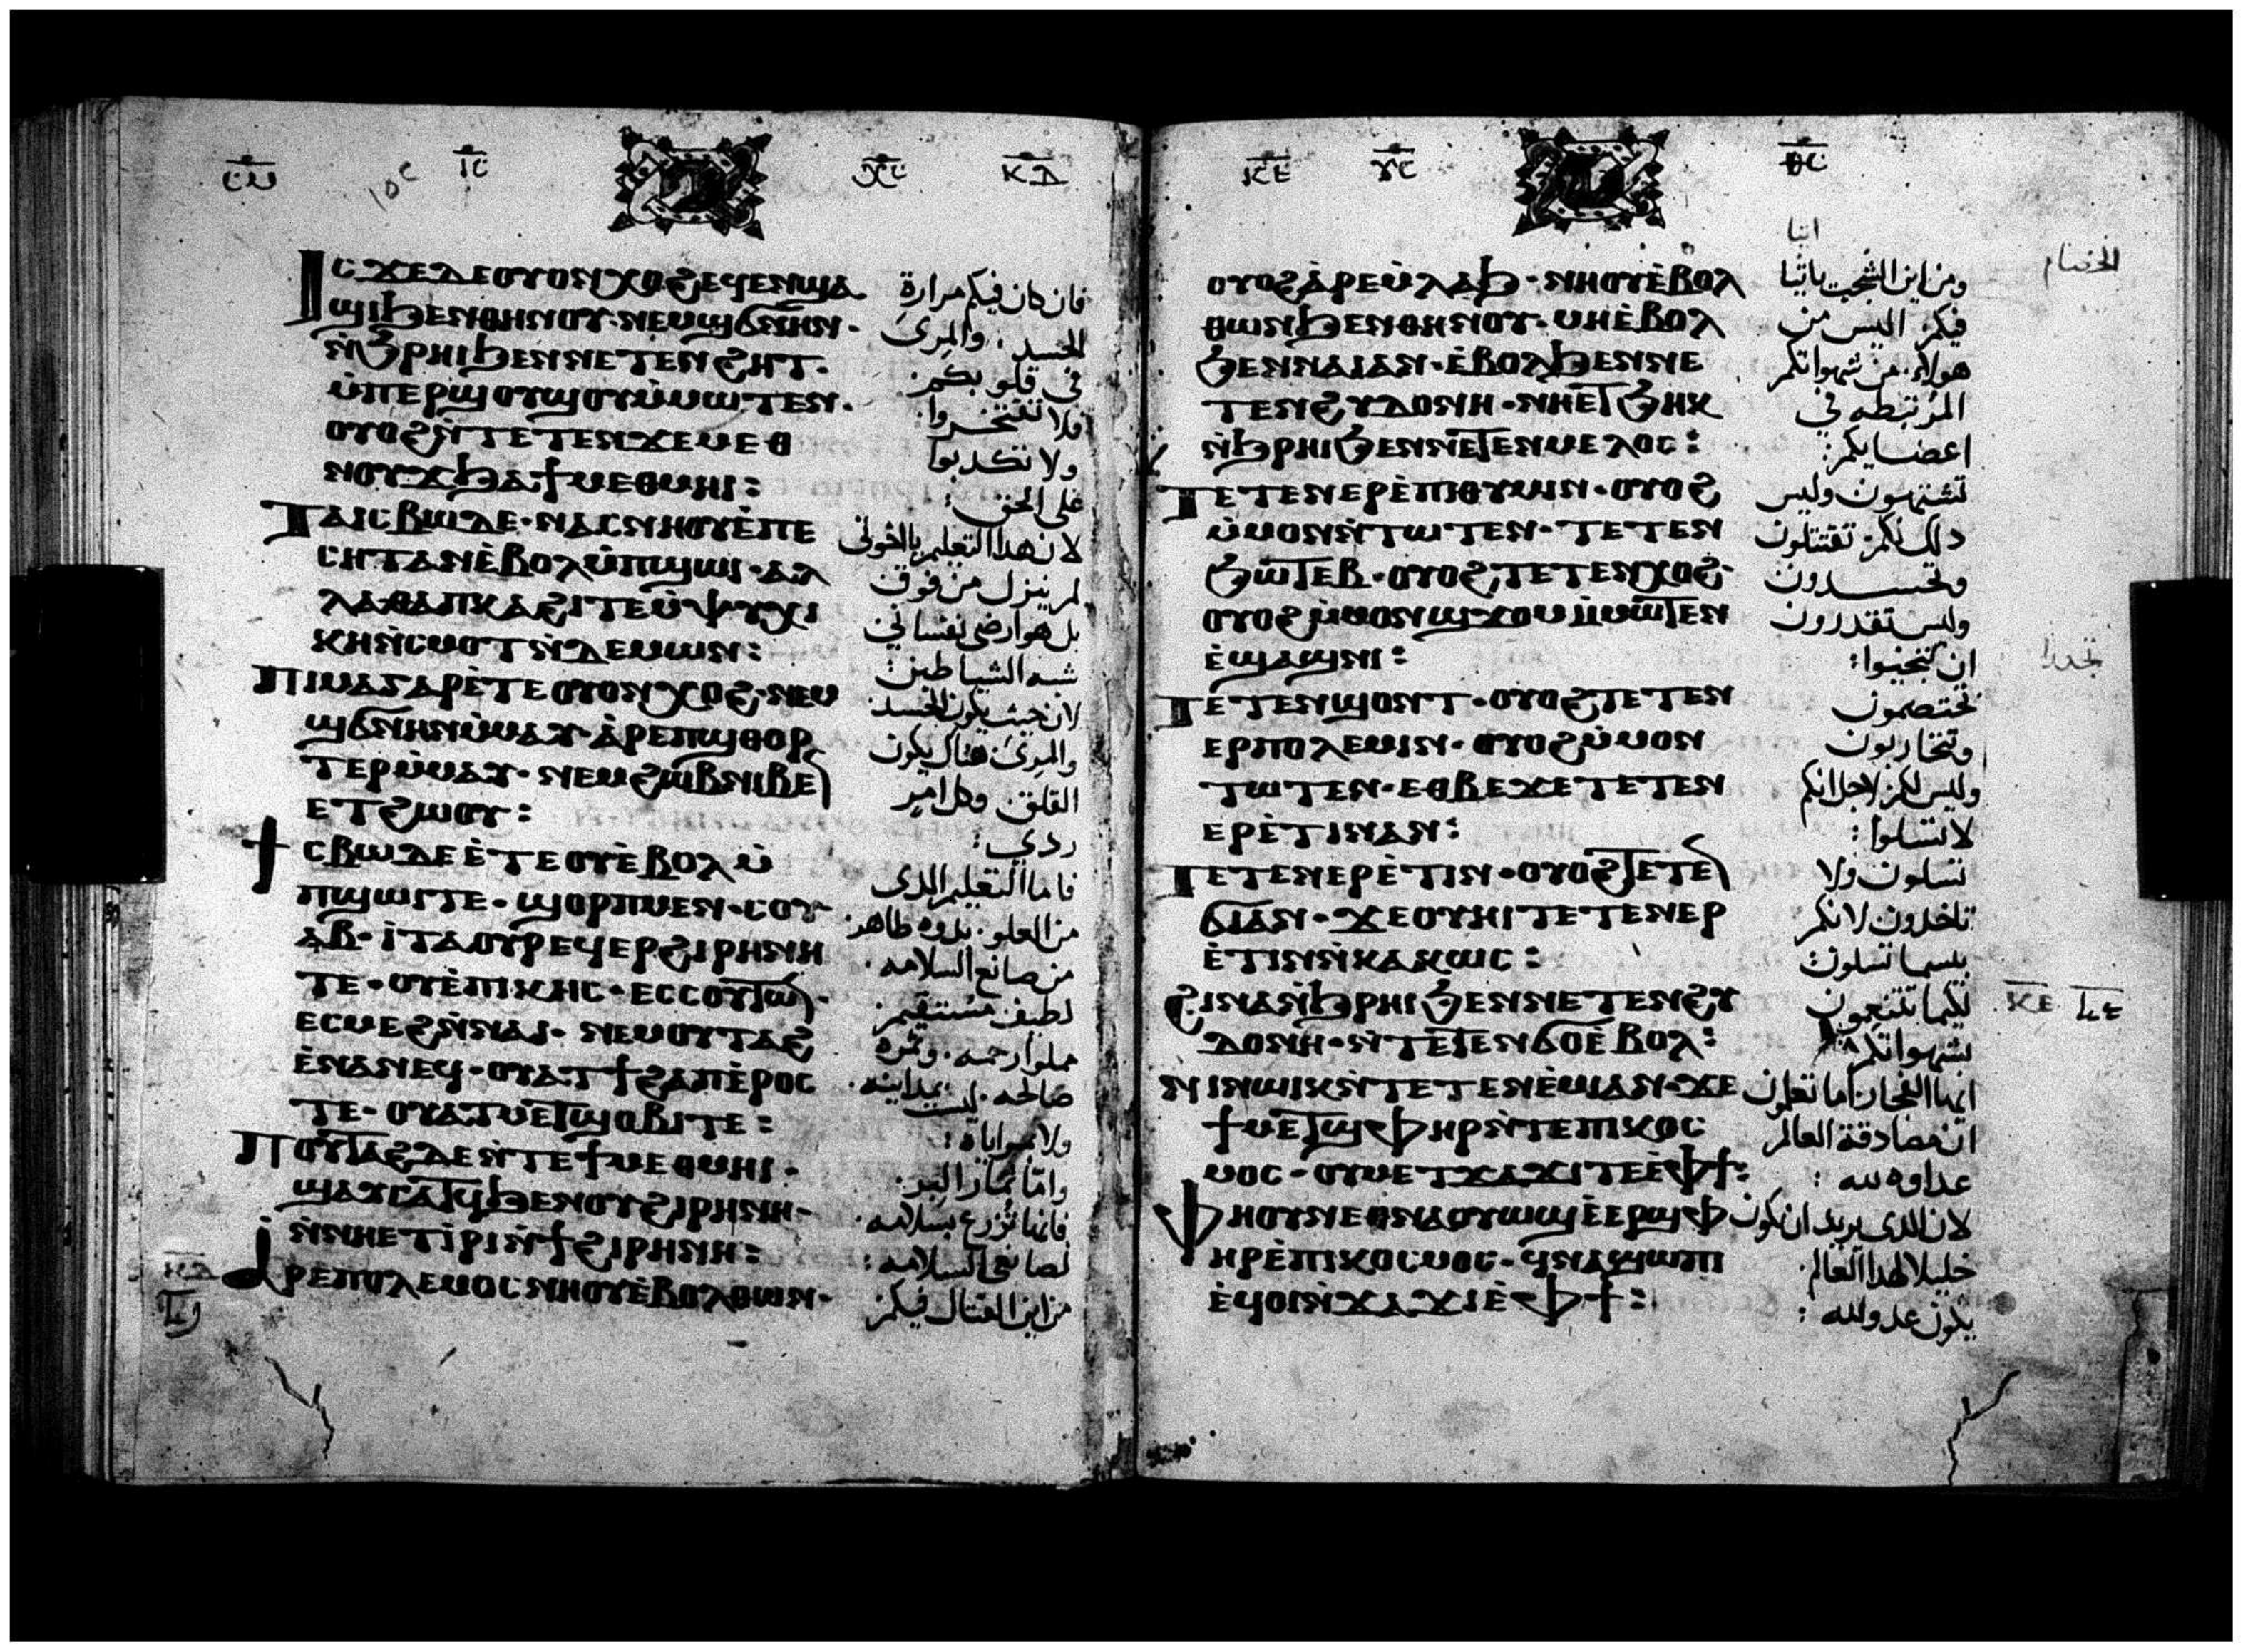 ⲓⲥ ⲭⲥ ⲕⲇ
ⲓⲥϫⲉⲇⲉⲟⲩⲟⲛⲭⲟϩⲉϥⲉⲛϣⲁ
ϣⲓϧⲉⲛⲑⲏⲛⲟⲩ·ⲛⲉⲙϣϭⲛⲏⲛ·
ⲛ̀ϧⲣⲏⲓϧⲉⲛⲛⲉⲧⲉⲛϩⲏⲧ·
ⲙ̀ⲡⲉⲣϣⲟⲩϣⲟⲩⲙ̀ⲙⲱⲧⲉⲛ·
ⲟⲩⲟϩⲛ̀ⲧⲉⲧⲉⲛϫⲉⲙⲉⲑ
ⲛⲟⲩϫϧⲁϯⲙⲉⲑⲙⲏⲓ:
ⲧⲁⲓⲥⲃⲱⲇⲉ·ⲛⲁⲥⲛⲏⲟⲩⲉ̀ⲡⲉ
ⲥⲏⲧⲁⲛⲉ̀ⲃⲟⲗⲙ̀ⲡϣⲱⲓ·ⲁⲗ
ⲗⲁⲑⲁⲡⲕⲁϩⲓⲧⲉⲙ̀ⲯⲩⲭⲓ
ⲕⲏⲛ̀ⲥⲙⲟⲧⲛ̀ⲇⲉⲙⲱⲛ:
ⲡⲓⲙⲁⲅⲁⲣⲉ̀ⲧⲉⲟⲩⲟⲛⲭⲟϩ·ⲛⲉⲙ
ϣϭⲛⲏⲛⲙ̀ⲙⲁⲩ·ⲁ̀ⲣⲉⲡϣⲑⲟⲣ
ⲧⲉⲣⲙ̀ⲙⲁⲩ·ⲛⲉⲙϩⲱⲃⲛⲓⲃⲉ
ⲉⲧϩⲱⲟⲩ:
ϯⲥⲃⲱⲇⲉⲉ̀ⲧⲉⲟⲩⲉ̀ⲃⲟⲗⲙ̀
ⲡϣⲱⲓⲧⲉ·ϣⲟⲣⲡⲙⲉⲛ·ⲥⲟⲩ
ⲁⲃ·ⲓⲧⲁⲟⲩⲣⲉϥⲉⲣϩⲓⲣⲏⲛⲏ
ⲧⲉ·ⲟⲩⲉ̀ⲡⲓⲕⲏⲥ·ⲉⲥⲥⲟⲩⲧⲱ·
ⲉⲥⲙⲉϩⲛ̀ⲛⲁⲓ·ⲛⲉⲙⲟⲩⲧⲁϩ
ⲉ̀ⲛⲁⲛⲉϥ·ⲟⲩⲁⲧϯϩⲁⲡⲉ̀ⲣⲟⲥ
ⲧⲉ·ⲟⲩⲁⲧⲙⲉⲧϣⲟⲃⲓⲧⲉ:
ⲡⲟⲩⲧⲁϩⲇⲉⲛ̀ⲧⲉϯⲙⲉⲑⲙⲏⲓ·
ϣⲁⲩⲥⲁⲧϥϧⲉⲛⲟⲩϩⲓⲣⲏⲛⲏ·
ⲛ̀ⲛⲏⲉⲧⲓ̀ⲣⲓⲛ̀ϯϩⲓⲣⲏⲛⲏ:
ⲁⲣⲉⲡⲟⲗⲉⲙⲟⲥⲛⲏⲟⲩⲉ̀ⲃⲟⲗⲑⲱⲛ·
فان كان فيكم مرارة
الحسد· والمرى
فى قلوبكم:
فلا تفتخروا:
ولا تكدبوا
على الحق:
لان هدا التعليم يا اخوتى
لم ينزل من فوق
بل هو ارضى نفسانى
شبه الشياطين:
لان حيث يكون الحسد
والمرى هناك يكون
القلق وكل امر
ردى:
فاما التعليم الدى
من العلو· بدوه طاهر·
من صانع السلامه·
لطيف مستقيم
مملوا رحمه· وثمره
صالحه·
ولا مراياة:
واما ثمار البر:
فانها تزرع بسلامه·
لصانعى السلامه:
من اين القتال فيكم
ⲕⲉ ⲩⲥ ⲑⲥ
ⲟⲩⲟϩⲁ̀ⲣⲉⲙ̀ⲗⲁϧ·ⲛⲏⲟⲩⲉ̀ⲃⲟⲗ
ⲑⲱⲛϧⲉⲛⲑⲏⲛⲟⲩ·ⲙⲏⲉ̀ⲃⲟⲗ
ϧⲉⲛⲛⲁⲓⲁⲛ·ⲉ̀ⲃⲟⲗϧⲉⲛⲛⲉ
ⲧⲉⲛϩⲩⲇⲟⲛⲏ·ⲛⲏⲉⲧϧⲏⲕ
ⲛ̀ϧⲣⲏⲓϧⲉⲛⲛⲉⲧⲉⲛⲙⲉⲗⲟⲥ:
ⲧⲉⲧⲉⲛⲉⲣⲉ̀ⲡⲓⲑⲩⲙⲓⲛ·ⲟⲩⲟϩ
ⲙ̀ⲙⲟⲛⲛ̀ⲧⲱⲧⲉⲛ·ⲧⲉⲧⲉⲛ
ϧⲱⲧⲉⲃ·ⲟⲩⲟϩⲧⲉⲧⲉⲛⲭⲟϩ·
ⲟⲩⲟϩⲙ̀ⲙⲟⲛϣϫⲟⲙⲙ̀ⲙⲱⲧⲉⲛ
ⲉ̀ϣⲁϣⲛⲓ:
ⲧⲉⲧⲉⲛϣⲟⲛⲧ·ⲟⲩⲟϩⲧⲉⲧⲉⲛ
ⲉⲣⲡⲟⲗⲉⲙⲓⲛ·ⲟⲩⲟϩⲙ̀ⲙⲟⲛ
ⲧⲱⲧⲉⲛ·ⲉⲑⲃⲉϫⲉⲧⲉⲧⲉⲛ
ⲉⲣⲉ̀ⲧⲓⲛⲁⲛ:
ⲧⲉⲧⲉⲛⲉⲣⲉ̀ⲧⲓⲛ·ⲟⲩⲟϩⲧⲉⲧⲉ
ϭⲓⲁⲛ·ϫⲉⲟⲩⲏⲓⲧⲉⲧⲉⲛⲉⲣ
ⲉ̀ⲧⲓⲛⲛ̀ⲕⲁⲕⲱⲥ:
ϩⲓⲛⲁⲛ̀ϧⲣⲏⲓϧⲉⲛⲛⲉⲧⲉⲛϩⲩ
ⲇⲟⲛⲏ·ⲛ̀ⲧⲉⲧⲉⲛϭⲟⲉ̀ⲃⲟⲗ:
ⲛⲓⲛⲱⲓⲕⲛ̀ⲧⲉⲧⲉⲛⲉ̀ⲙⲓⲁⲛ·ϫⲉ
ϯⲙⲉⲧϣⲫⲏⲣⲛ̀ⲧⲉⲡⲓⲕⲟⲥ
ⲙⲟⲥ·ⲟⲩⲙⲉⲧϫⲁϫⲓⲧⲉⲉ̀ⲫϯ:
ⲫⲏⲟⲩⲛⲉⲑⲛⲁⲟⲩⲱϣⲉ̀ⲉⲣϣⲫ
ⲏⲣⲉ̀ⲡⲓⲕⲟⲥⲙⲟⲥ·ϥⲛⲁϣⲱⲡⲓ
ⲉ̀ϥⲟⲓⲛ̀ϫⲁϫⲓⲉ̀ⲫϯ:
ومن اين الشجب ياتيا
فيكم· اليس من
هولاء· من شهواتكم
المرتبطه فى
اعضايكم:
تشتهون وليس
دلك لكم· تقتتلون
وتحسدون
وليس تقدرون
ان تنجيوا:
تختصمون
وتتحاربون
وليس لكم لاجل انكم
لا تسلوا:
تسلون ولا
تاخدون لانكم
بيسما تسلون:
لكيما تتنعمون
بشهواتكم
ايها الفجار اما تعلمون
ان مصادقة العالم
عداوه لله:
لان الدى يريد ان يكون
خليلا لهدا العالم·
يكون عدو لله:
الخصام
ⲕⲉ